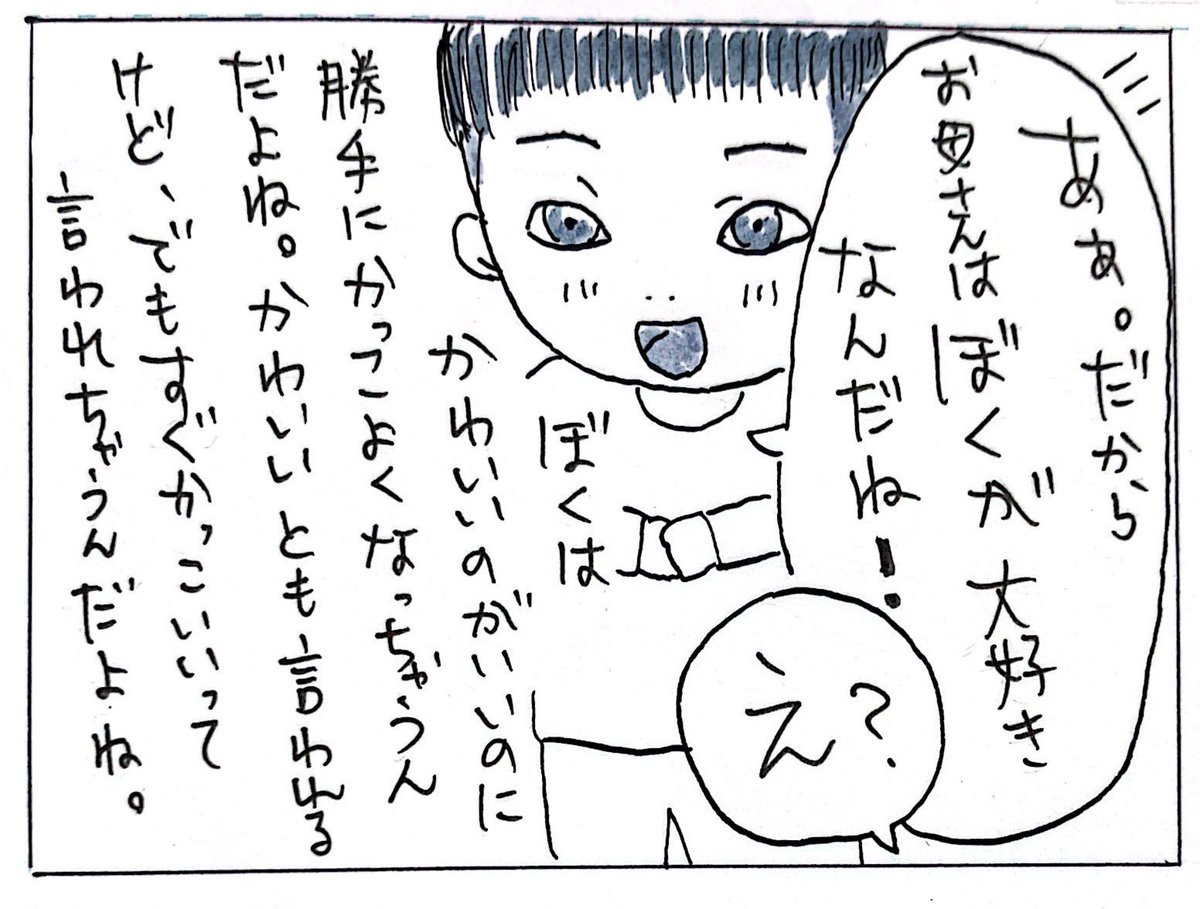 あぁ。だから
お母さんはぼくが大好き
なんだね!
え?
ぼくは
かわいいのがいいのに
勝手にかっこよくなっちゃうん
だよね。かわいいとも言われる
けど、でもすぐかっこいいって
言われちゃうんだよね。